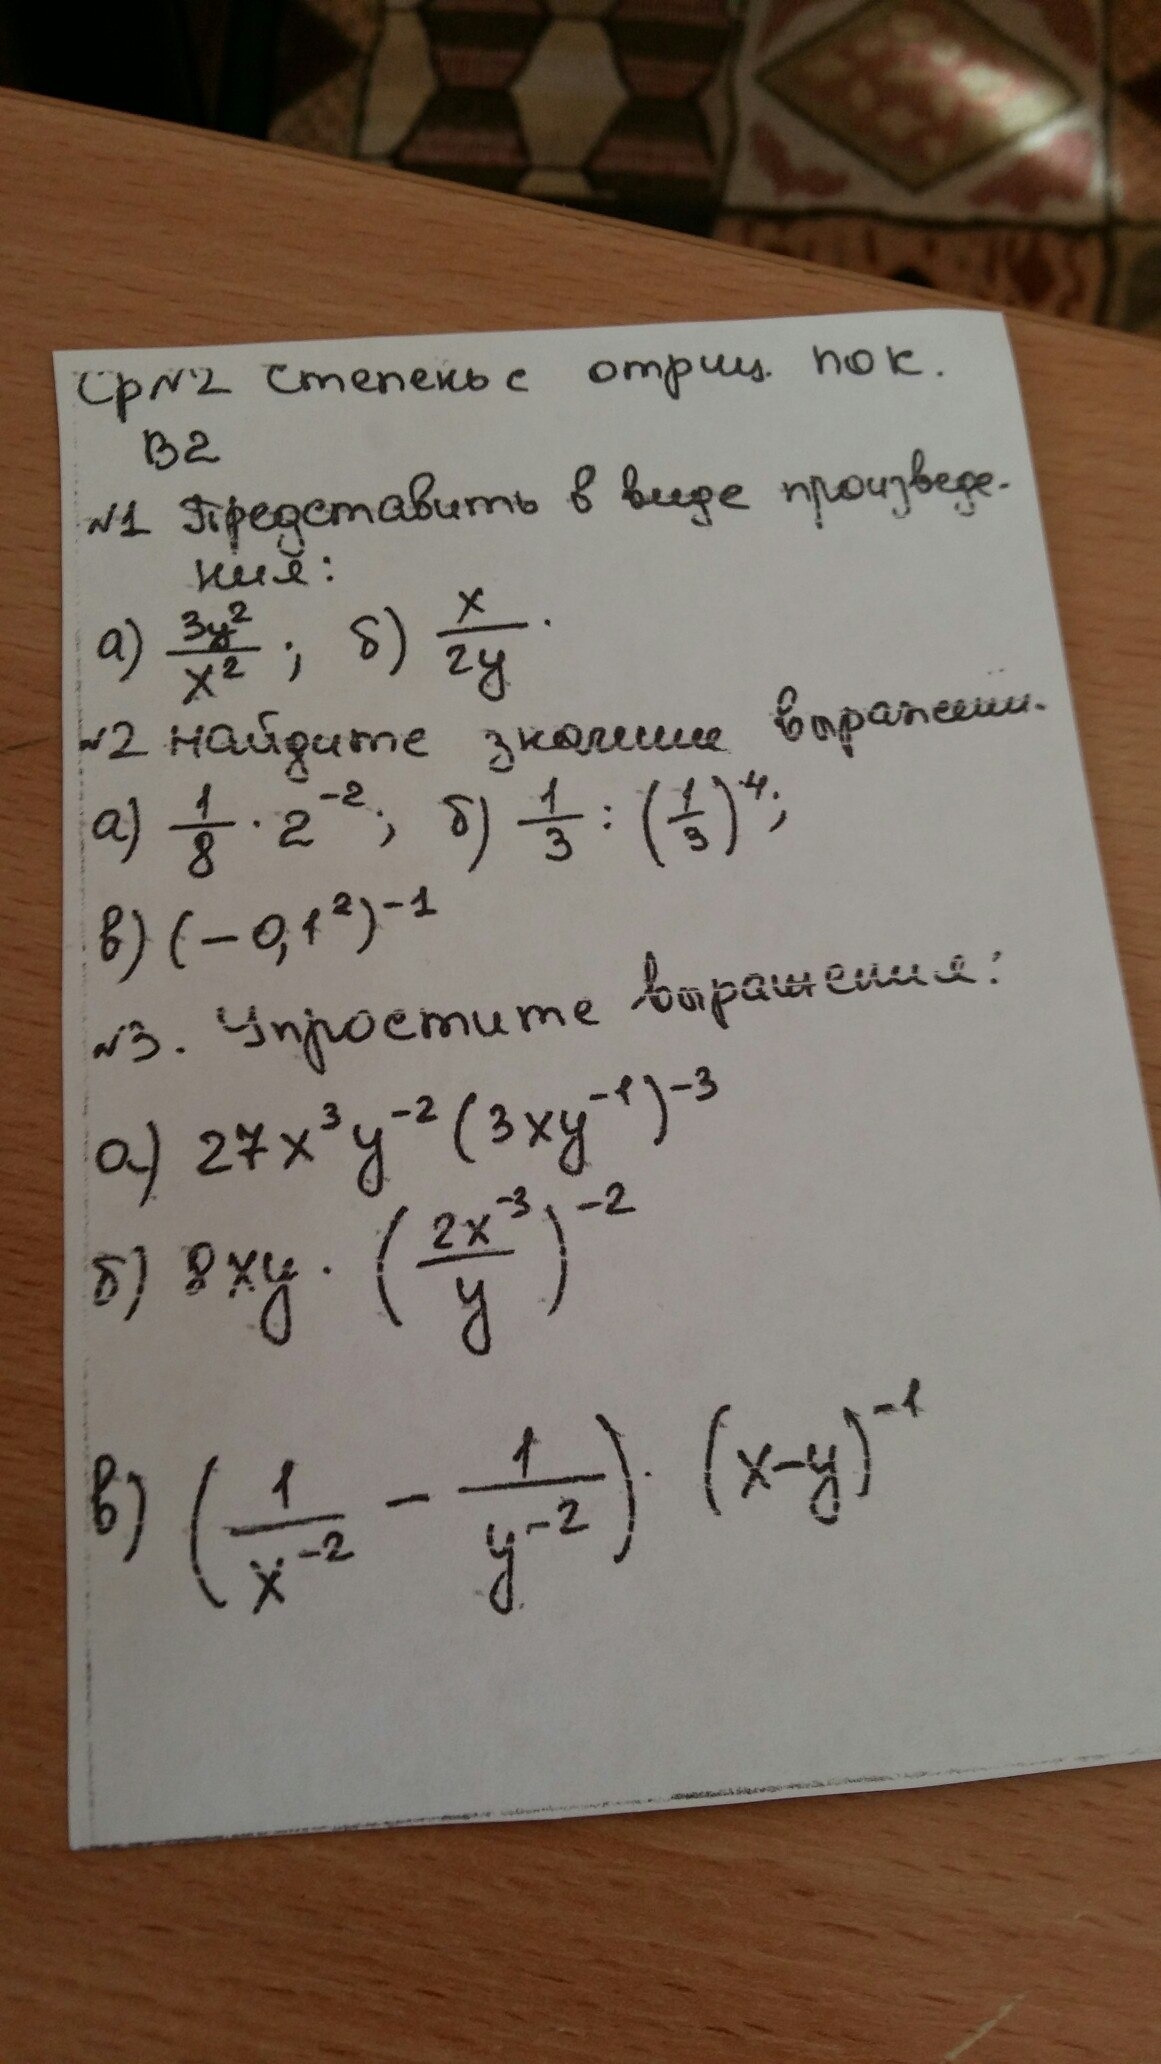 Ср №2 Степень с отриц. пок.
В2
№1 Представить в виде произведе-
ния:
а) 3y²/x²; б) x/2y.
№2 Найдите значение выражени.
а) 1/8 · 2⁻²; б) 1/3 : (1/3)⁻⁴;
в) (-0,1²)⁻¹
№3. Упростите выражения:
а) 27x³y⁻²(3xy⁻¹)⁻³
б) 8xy · (2x⁻³/y)⁻²
в) (1/x⁻² - 1/y⁻²) · (x-y)⁻¹